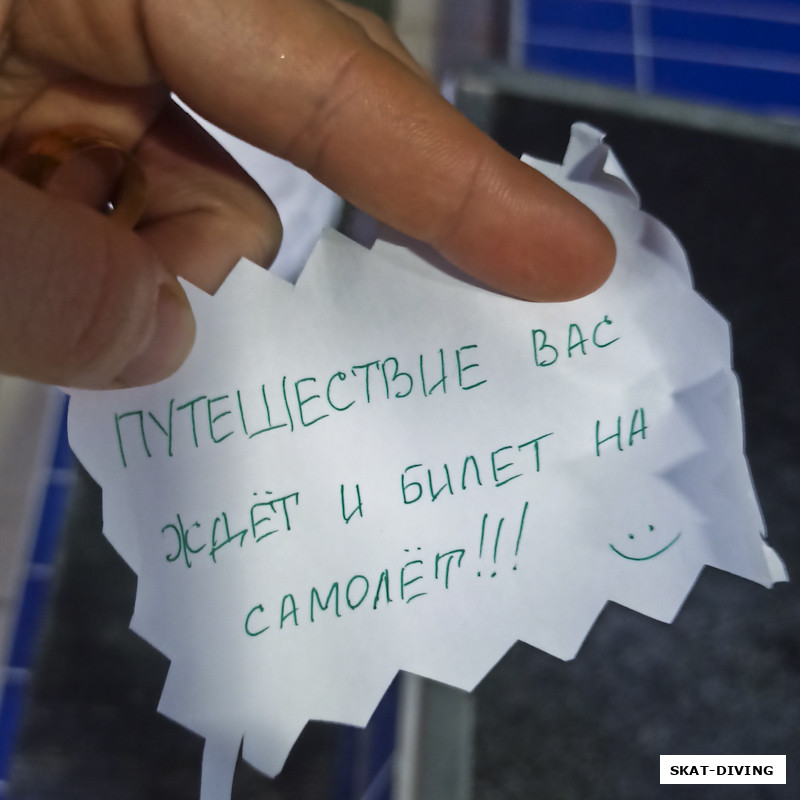 ПУТЕШЕСТВИЕ ВАС
ЖДЁТ И БИЛЕТ НА
САМОЛЁТ!!!
SKAT-DIVING